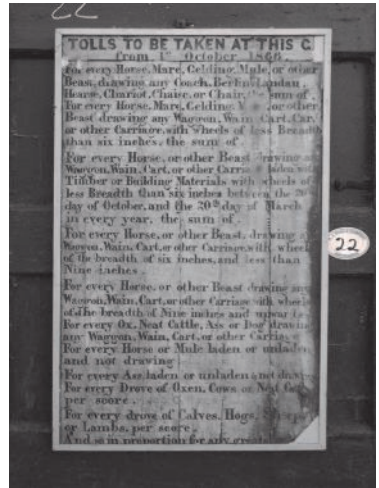 22
TOLLS TO BE TAKEN AT THIS G
from 1st October 1866.
For every Horse, Mare, Gelding, Mule, or other
Beast, drawing any Coach, Berlin, Landau,
Hearse, Chariot, Chaise, or Chair, the sum of
For every Horse, Mare, Gelding, or other
Beast drawing any Waggon, Wain, Cart, Car,
or other Carriage, with Wheels of less Breadth
than six inches, the sum of.
For every Horse, or other Beast drawing
Waggon, Wain, Cart, or other laden with
Timber or Building Materials with wheels of
less Breadth than six inches between the
day of October, and the 20th day of March
in every year, the sum of.
For every Horse, or other Beast, drawing a
Waggon, Wain, Cart, or other Carriage, with wheel
of the breadth of six inches, and less than
Nine inches.
For every Horse, or other Beast drawing any
Waggon, Wain, Cart, or other Carriage with wheels
of The breadth of Nine inches and upwards
For every Ox, Neat Cattle, Ass or Dog drawing
any Waggon, Wain, Cart, or other Carriage
For every Horse or Mule laden or unladen
and not drawing
For every Ass, laden or unladen not
For every Drove of Oxen, Cows or Neat
per score.
For every drove of Calves, Hogs, Sheep
or Lambs, per score.
And so in proportion for any
22